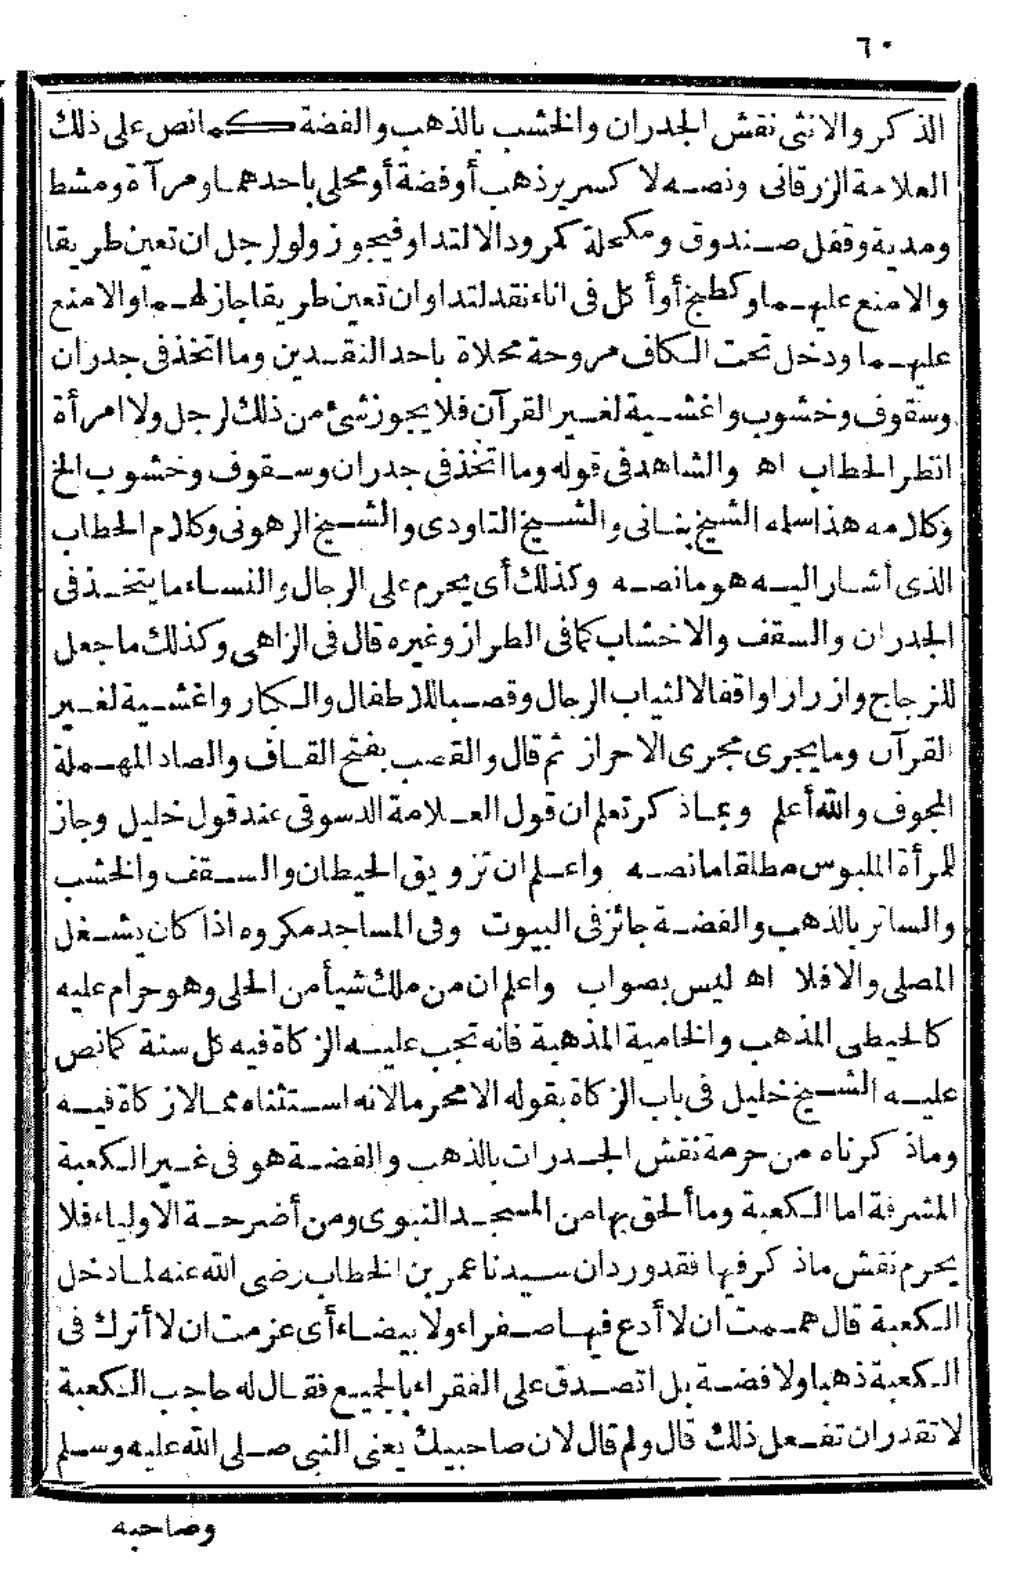 ٦٠
الذكر والانثى نقش الجدران والخشب بالذهب والفضة كما نص على ذلك
العلامة الزرقانى ونصه لا كسرير ذهب أو فضة أو محلى باحدهما ومرآة ومشط
ومدية وقفل صندوق ومكحلة كمرود الا لتداو فيجوز ولو لرجل ان تعين طريقا
والا منع عليهما وكطبخ أو أكل فى اناء نقد لتداو ان تعين طريقا جاز لهما والا منع
عليهما ودخل تحت الكاف مروحة محلاة باحد النقدين وما اتخذ فى جدران
وسقوف وخشوب واغشية لغير القرآن فلا يجوز شئ من ذلك لرجل ولا امرأة
انظر الحطاب اه والشاهد فى قوله وما اتخذ فى جدران وسقوف وخشوب الخ
وكلامه هذا سلمه الشيخ بنانى والشيخ التاودى والشيخ الرهونى وكلام الحطاب
الذى أشار اليه هو ما نصه وكذلك أى يحرم على الرجال والنساء ما يتخذ فى
الجدران والسقف والاخشاب كما فى الطراز وغيره قال فى الزاهى وكذلك ما جعل
للزجاج وازرارا واقفالا لثياب الرجال وقصبا للاطفال والكبار واغشية لغير
القرآن وما يجرى مجرى الاحراز ثم قال والقصب بفتح القاف والصاد المهملة
المجوف والله أعلم وبما ذكر تعلم ان قول العلامة الدسوقى عند قول خليل وجاز
للمرأة الملبوس مطلقا ما نصه واعلم ان تزويق الحيطان والسقف والخشب
والساتر بالذهب والفضة جائز فى البيوت وفى المساجد مكروه اذا كان يشغل
المصلى والا فلا اه ليس بصواب واعلم ان من ملك شيأ من الحلى وهو حرام عليه
كالحيطى المذهب والخامية المذهبة فانه تجب عليه الزكاة فيه كل سنة كما نص
عليه الشيخ خليل فى باب الزكاة بقوله الا محرما لانه استثناه مما لا زكاة فيه
وما ذكرناه من حرمة نقش الجدرات بالذهب والفضة هو فى غير الكعبة
المشرفة اما الكعبة وما ألحق بها من المسجد النبوى ومن أضرحة الاولياء فلا
يحرم نقش ما ذكر فيها فقد ورد ان سيدنا عمر بن الخطاب رضى الله عنه لما دخل
الكعبة قال هممت ان لا أدع فيها صفراء ولا بيضاء أى عزمت ان لا أترك فى
الكعبة ذهبا ولا فضة بل اتصدق على الفقراء بالجميع فقال له حاجب الكعبة
لا تقدر ان تفعل ذلك قال ولم قال لان صاحبيك يعنى النبى صلى الله عليه وسلم
وصاحبه